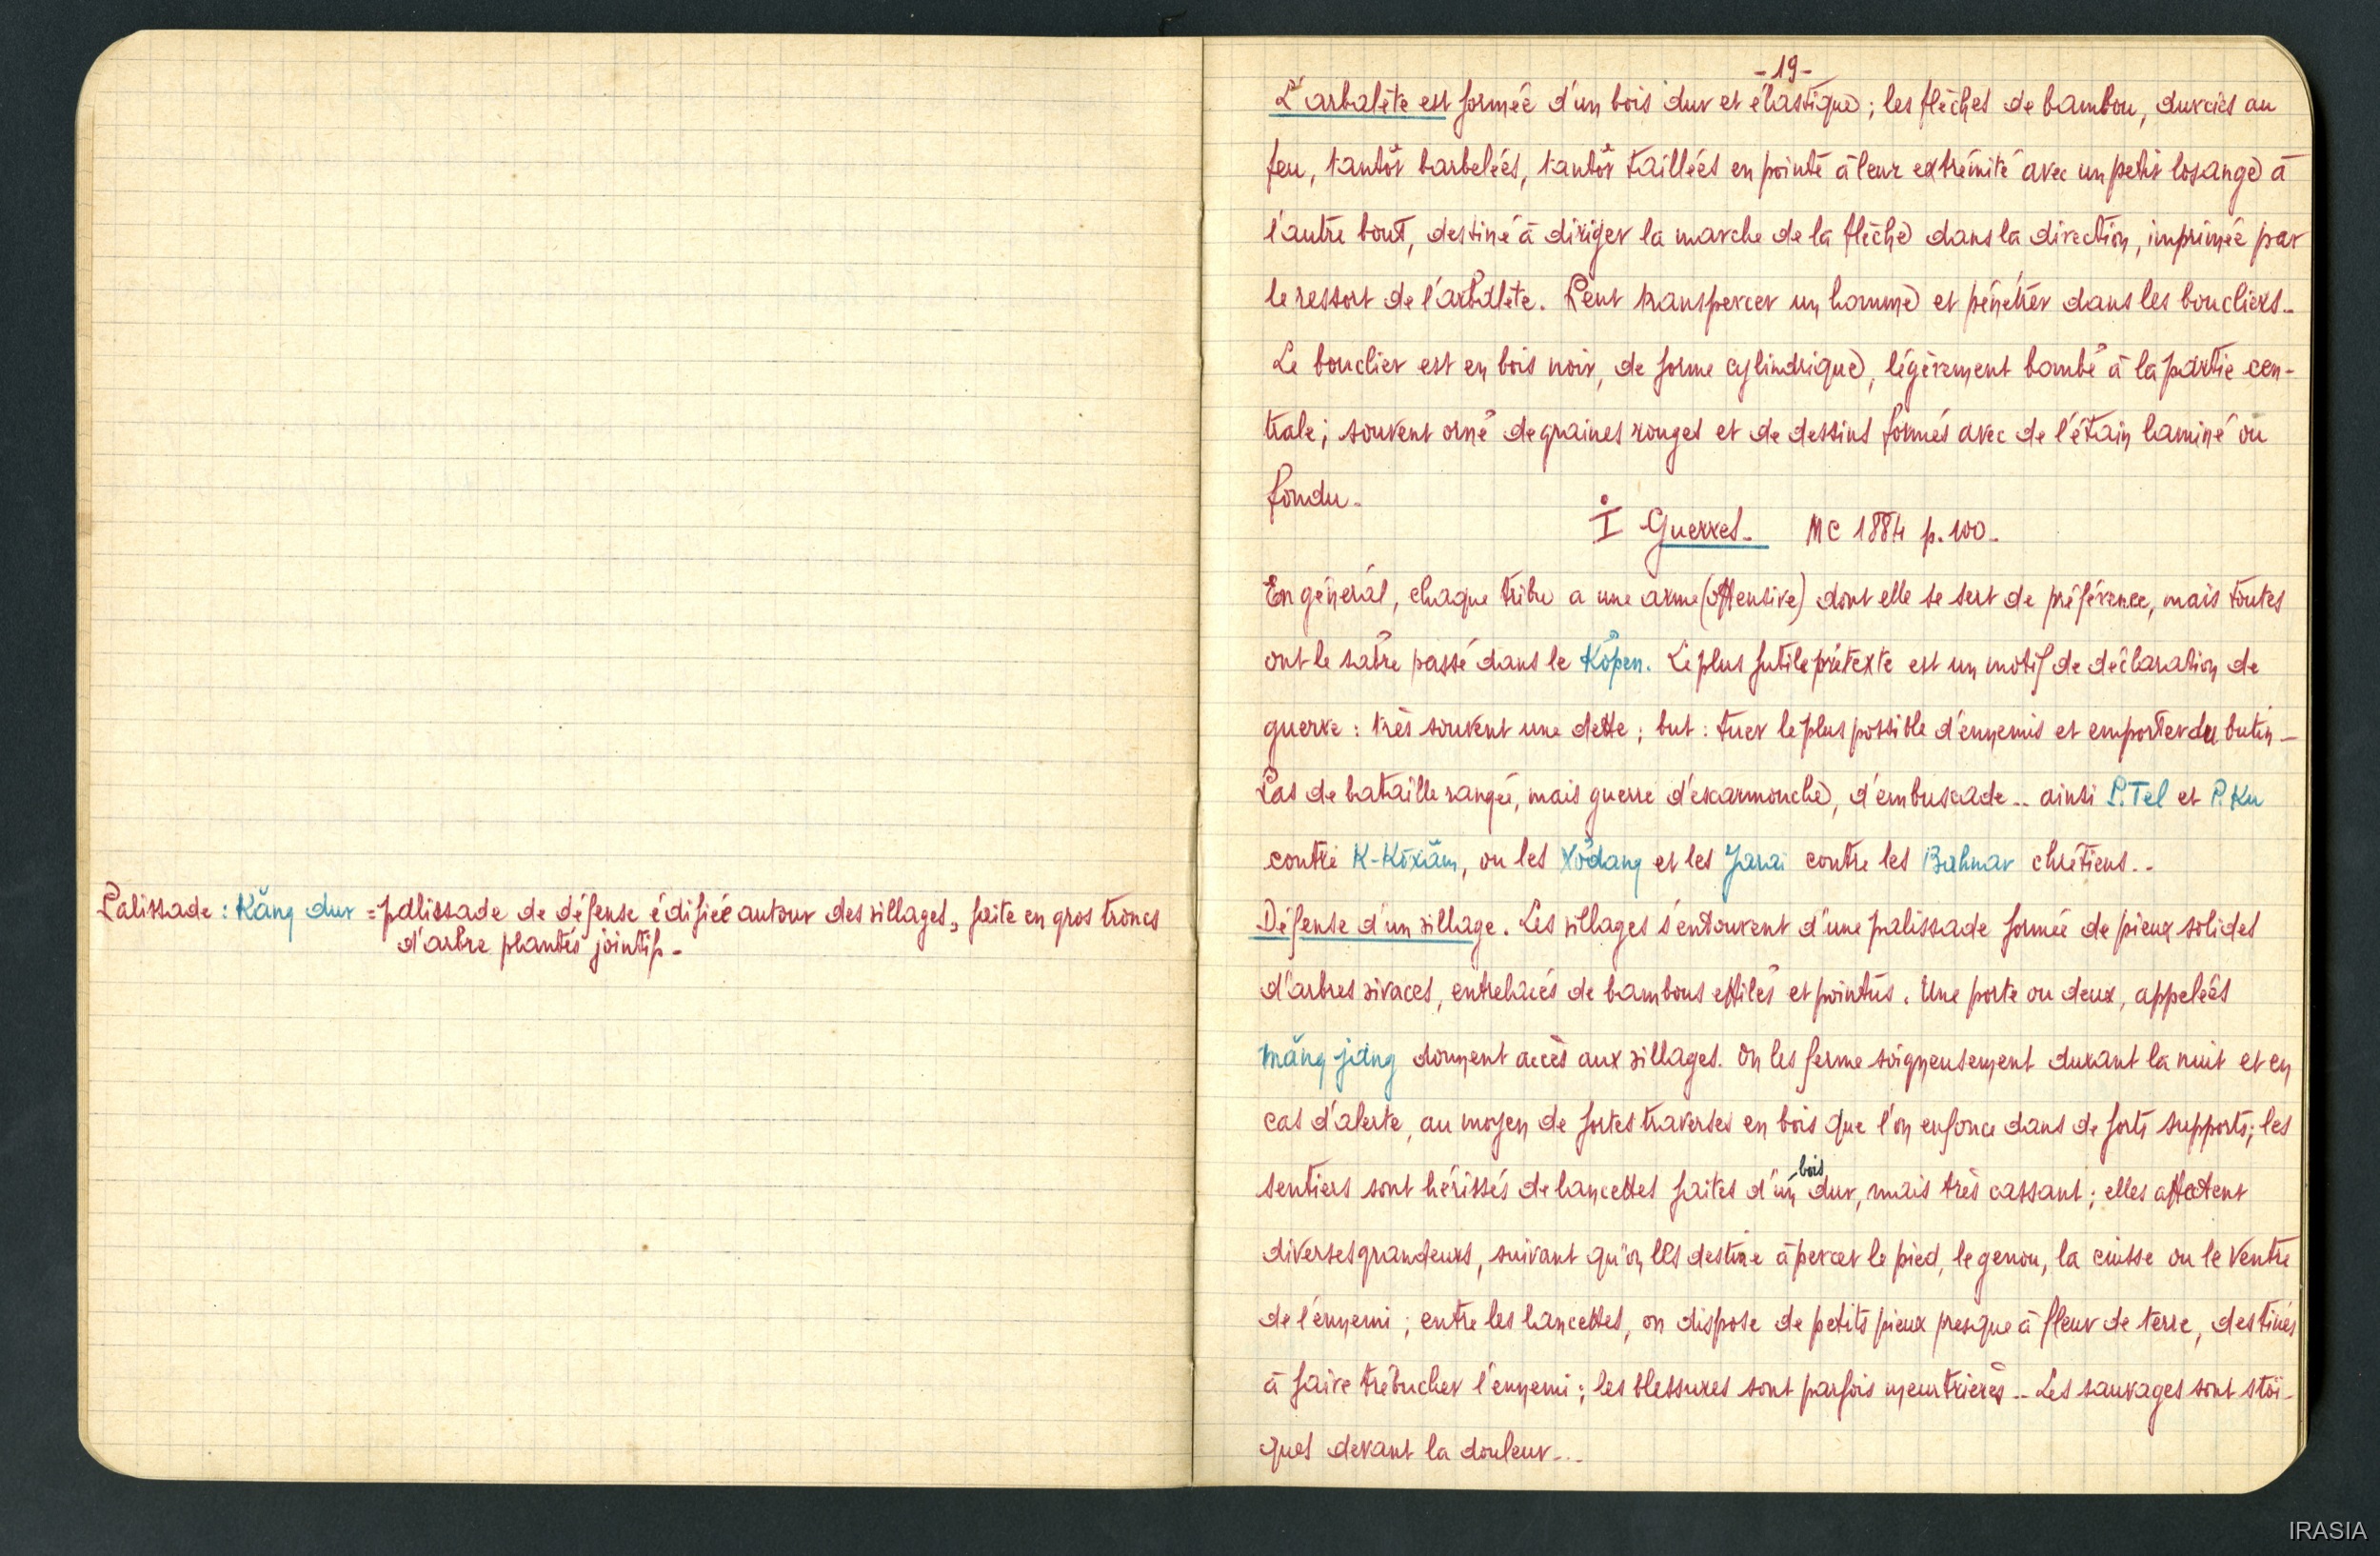 Palissade : Kăng dur = palissade de défense édifiée autour des villages, faite en gros troncs
d'arbre plantés jointifs -
- 19 -
L'arbalète est formée d'un bois dur et élastique ; les flèches de bambou, durcies au
feu, tantôt barbelées, tantôt taillées en pointe à leur extrémité avec un petit losange à
l'autre bout, destiné à diriger la marche de la flèche dans la direction, imprimée par
le ressort de l'arbalète. Peut transpercer un homme et pénétrer dans les boucliers..
Le bouclier est en bois noir, de forme cylindrique, légèrement bombé à la partie cen-
trale ; souvent orné de graines rouges et de dessins formés avec de l'étain laminé ou
fondu.
I Guerres. MC 1884 p. 100.
En général, chaque tribu a une arme (offensive) dont elle se sert de préférence, mais toutes
ont le sabre passé dans le Kŏpen. Le plus futile prétexte est un motif de déclaration de
guerre : très souvent une dette ; but : tuer le plus possible d'ennemis et emporter du butin -
Pas de bataille rangée, mais guerre d'escarmouche, d'embuscade .. ainsi P. Tel et P. Ku
contre K-Kŏxăm, ou les Xŏdang et les Jarai contre les Bahnar chrétiens..
Défense d'un village. Les villages s'entourent d'une palissade formée de pieux solides
d'arbres vivaces, entrelacés de bambous effilés et pointus. Une porte ou deux, appelées
măng jang donnent accès aux villages. On les ferme soigneusement durant la nuit et en
cas d'alerte, au moyen de fortes traverses en bois que l'on enfonce dans de forts supports ; les
sentiers sont hérissés de lancettes faites d'un bois dur, mais très cassant ; elles affectent
diverses grandeurs, suivant qu'on les destine à percer le pied, le genou, la cuisse ou le ventre
de l'ennemi ; entre les lancettes, on dispose de petits pieux presque à fleur de terre, destinés
à faire trébucher l'ennemi ; les blessures sont parfois meurtrières .. Les sauvages sont stoï-
ques devant la douleur...
IRASIA